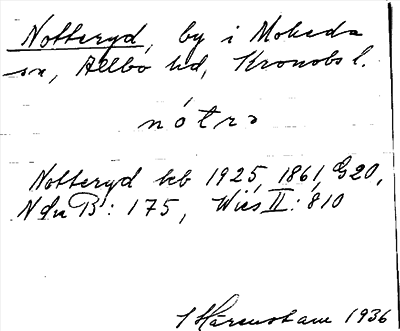 Notteryd, by i Moheda
sn, Allbo hd, Kronobs l.
nótrə
Notteryd kb 1925, 1861, G20,
NduB: 175, Wies II: 810
J Härenstam 1936